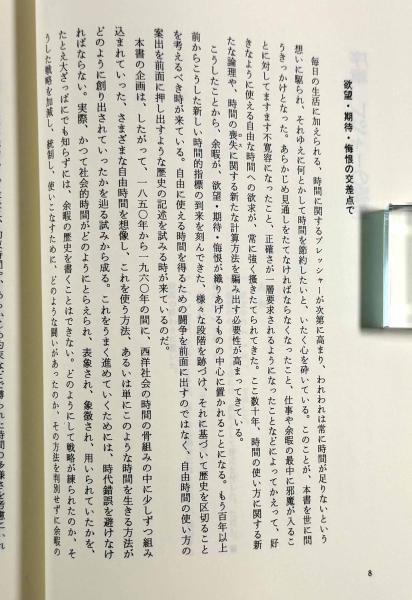 欲望・期待・悔恨の交差点で
毎日の生活に加えられる、時間に関するプレッシャーが次第に高まり、われわれは常に時間が足りないという
想いに駆られ、それゆえに何とかして時間を節約したいと、いたく心を砕いている。このことが、本書を世に問
うきっかけとなった。あらかじめ見通しをたてなければならなくなったこと、仕事や余暇の最中に邪魔が入るこ
とに対してますます不寛容になったこと、正確さが一層要求されるようになったことなどによってかえって、好
きなように使える自由な時間への欲求が、常に強く掻きたてられてきた。ここ数十年、時間の使い方に関する新
たな論理や、時間の喪失に関する新たな計算方法を編み出す必要性が高まってきている。
こうしたことから、余暇が、欲望・期待・悔恨が織りあげるものの中心に置かれることになる。もう百年以上
前からこうした新しい時間的指標の到来を刻んできた、様々な段階を跡づけ、それに基づいて歴史を区切ること
を考えるべき時が来ている。自由に使える時間を得るための闘争を前面に出すのではなく、自由時間の使い方の
案出を前面に押し出すような歴史の記述を試みる時が来ているのだ。
本書の企画は、したがって、一八五〇年から一九六〇年の間に、西洋社会の時間の骨組みの中に少しずつ組み
込まれていった、さまざまな自由時間を想像し、これを使う方法、あるいは単にこのような時間を生きる方法が
どのように創り出されていったかを辿る試みから成る。これをうまく進めていくためには、時代錯誤を避けなけ
ればならない。実際、かつて社会的時間がどのようにとらえられ、表象され、象徴され、用いられていたかを、
たとえ大ざっぱにでも知らずには、余暇の歴史を書くことはできない。どのようにして戦略が練られたのか、そ
うした戦略を加減し、統制し、使いこなすために、どのような闘いがあったのか、その方法を判別せずに余暇の
8